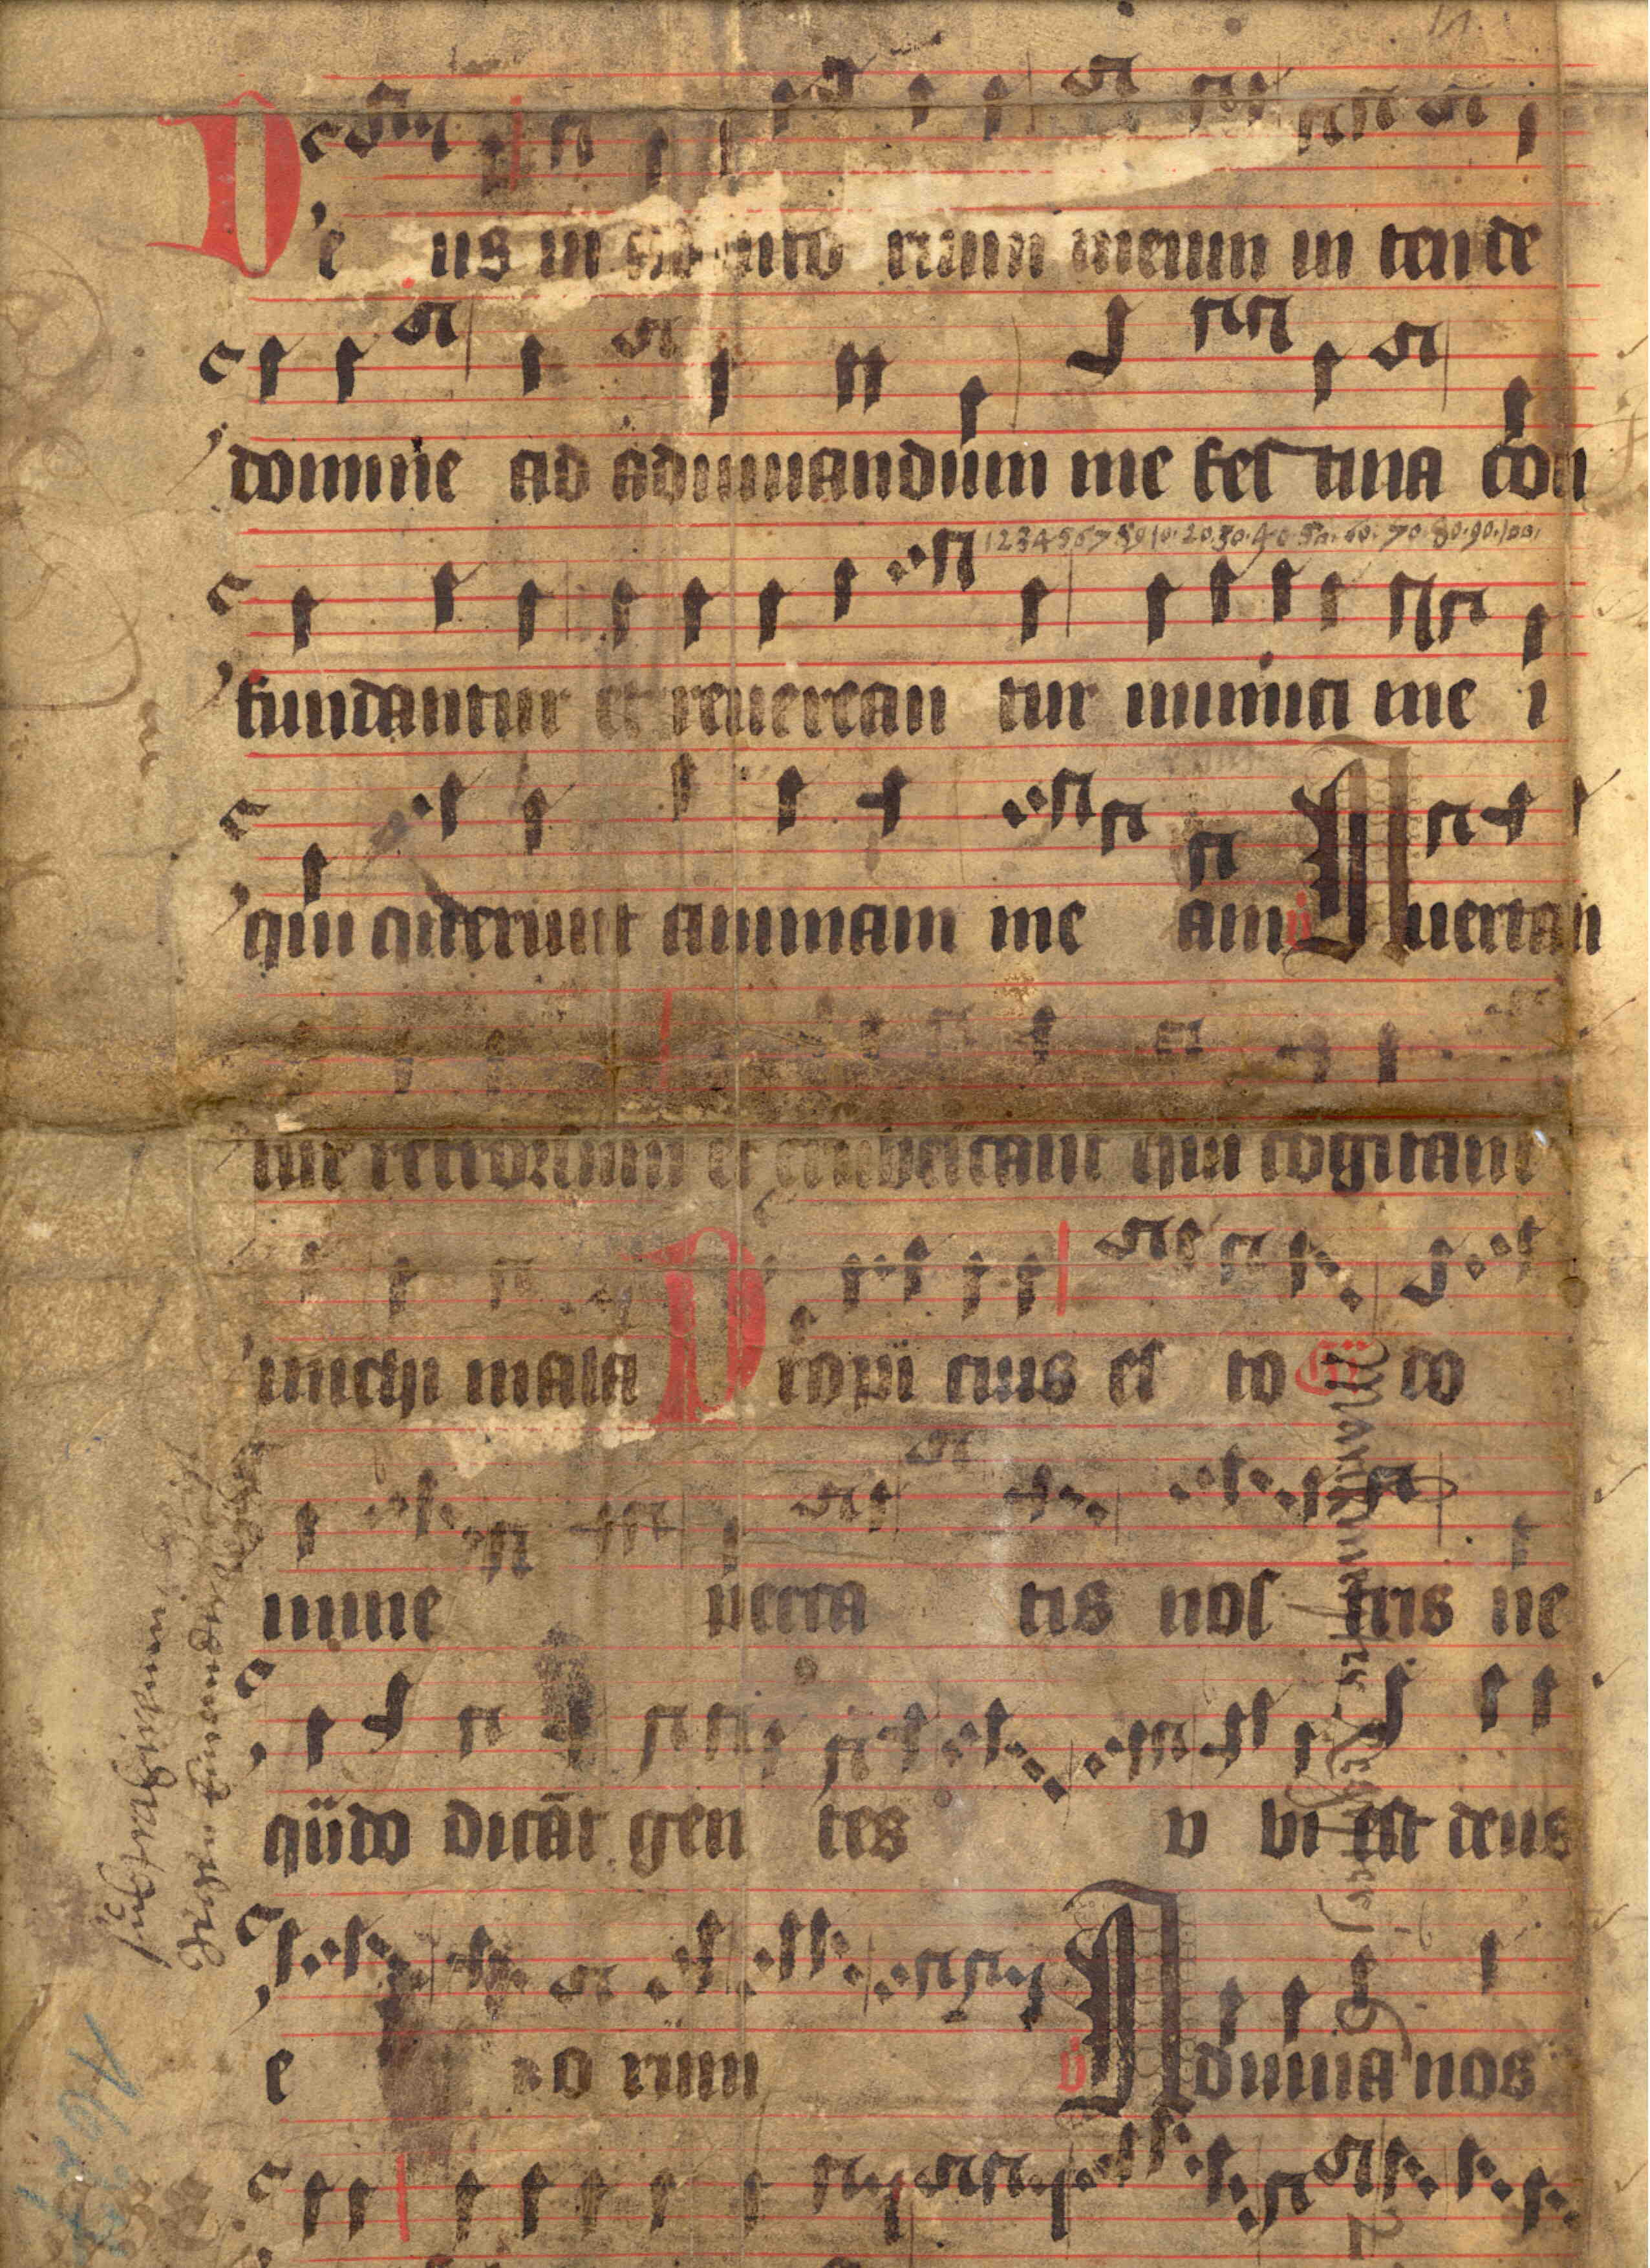 De us in ad iuto rium meum in ten de
domine ad adiuuandum me fes tina con
1 2 3 4 5 6 7 8 9 10. 20. 30. 40. 50. 60. 70. 80. 90. 100.
fundantur et reuerean tur inimici me i
qui querunt animam me am v Auertan
tur retrorsum et erubescant qui cogitant
michi mala Propi cius es to Gr do
mine pecca tis nos tris ne
qudo dicāt gen tes v bi est deus
e o rum v Adiuua nos